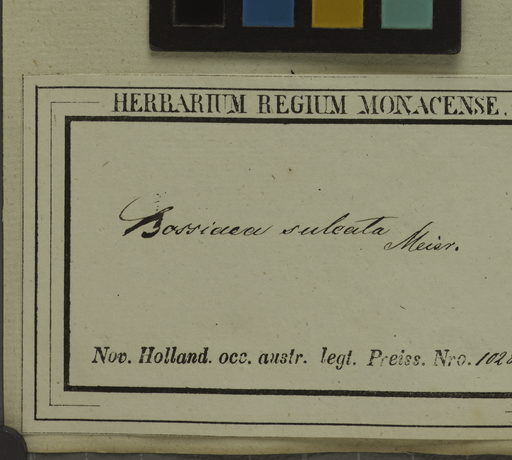 HERBARIUM REGIUM MONACENSE.
Bossiaea sulcata Meisr.
Nov. Holland. occ. austr. legt. Preiss. Nro.